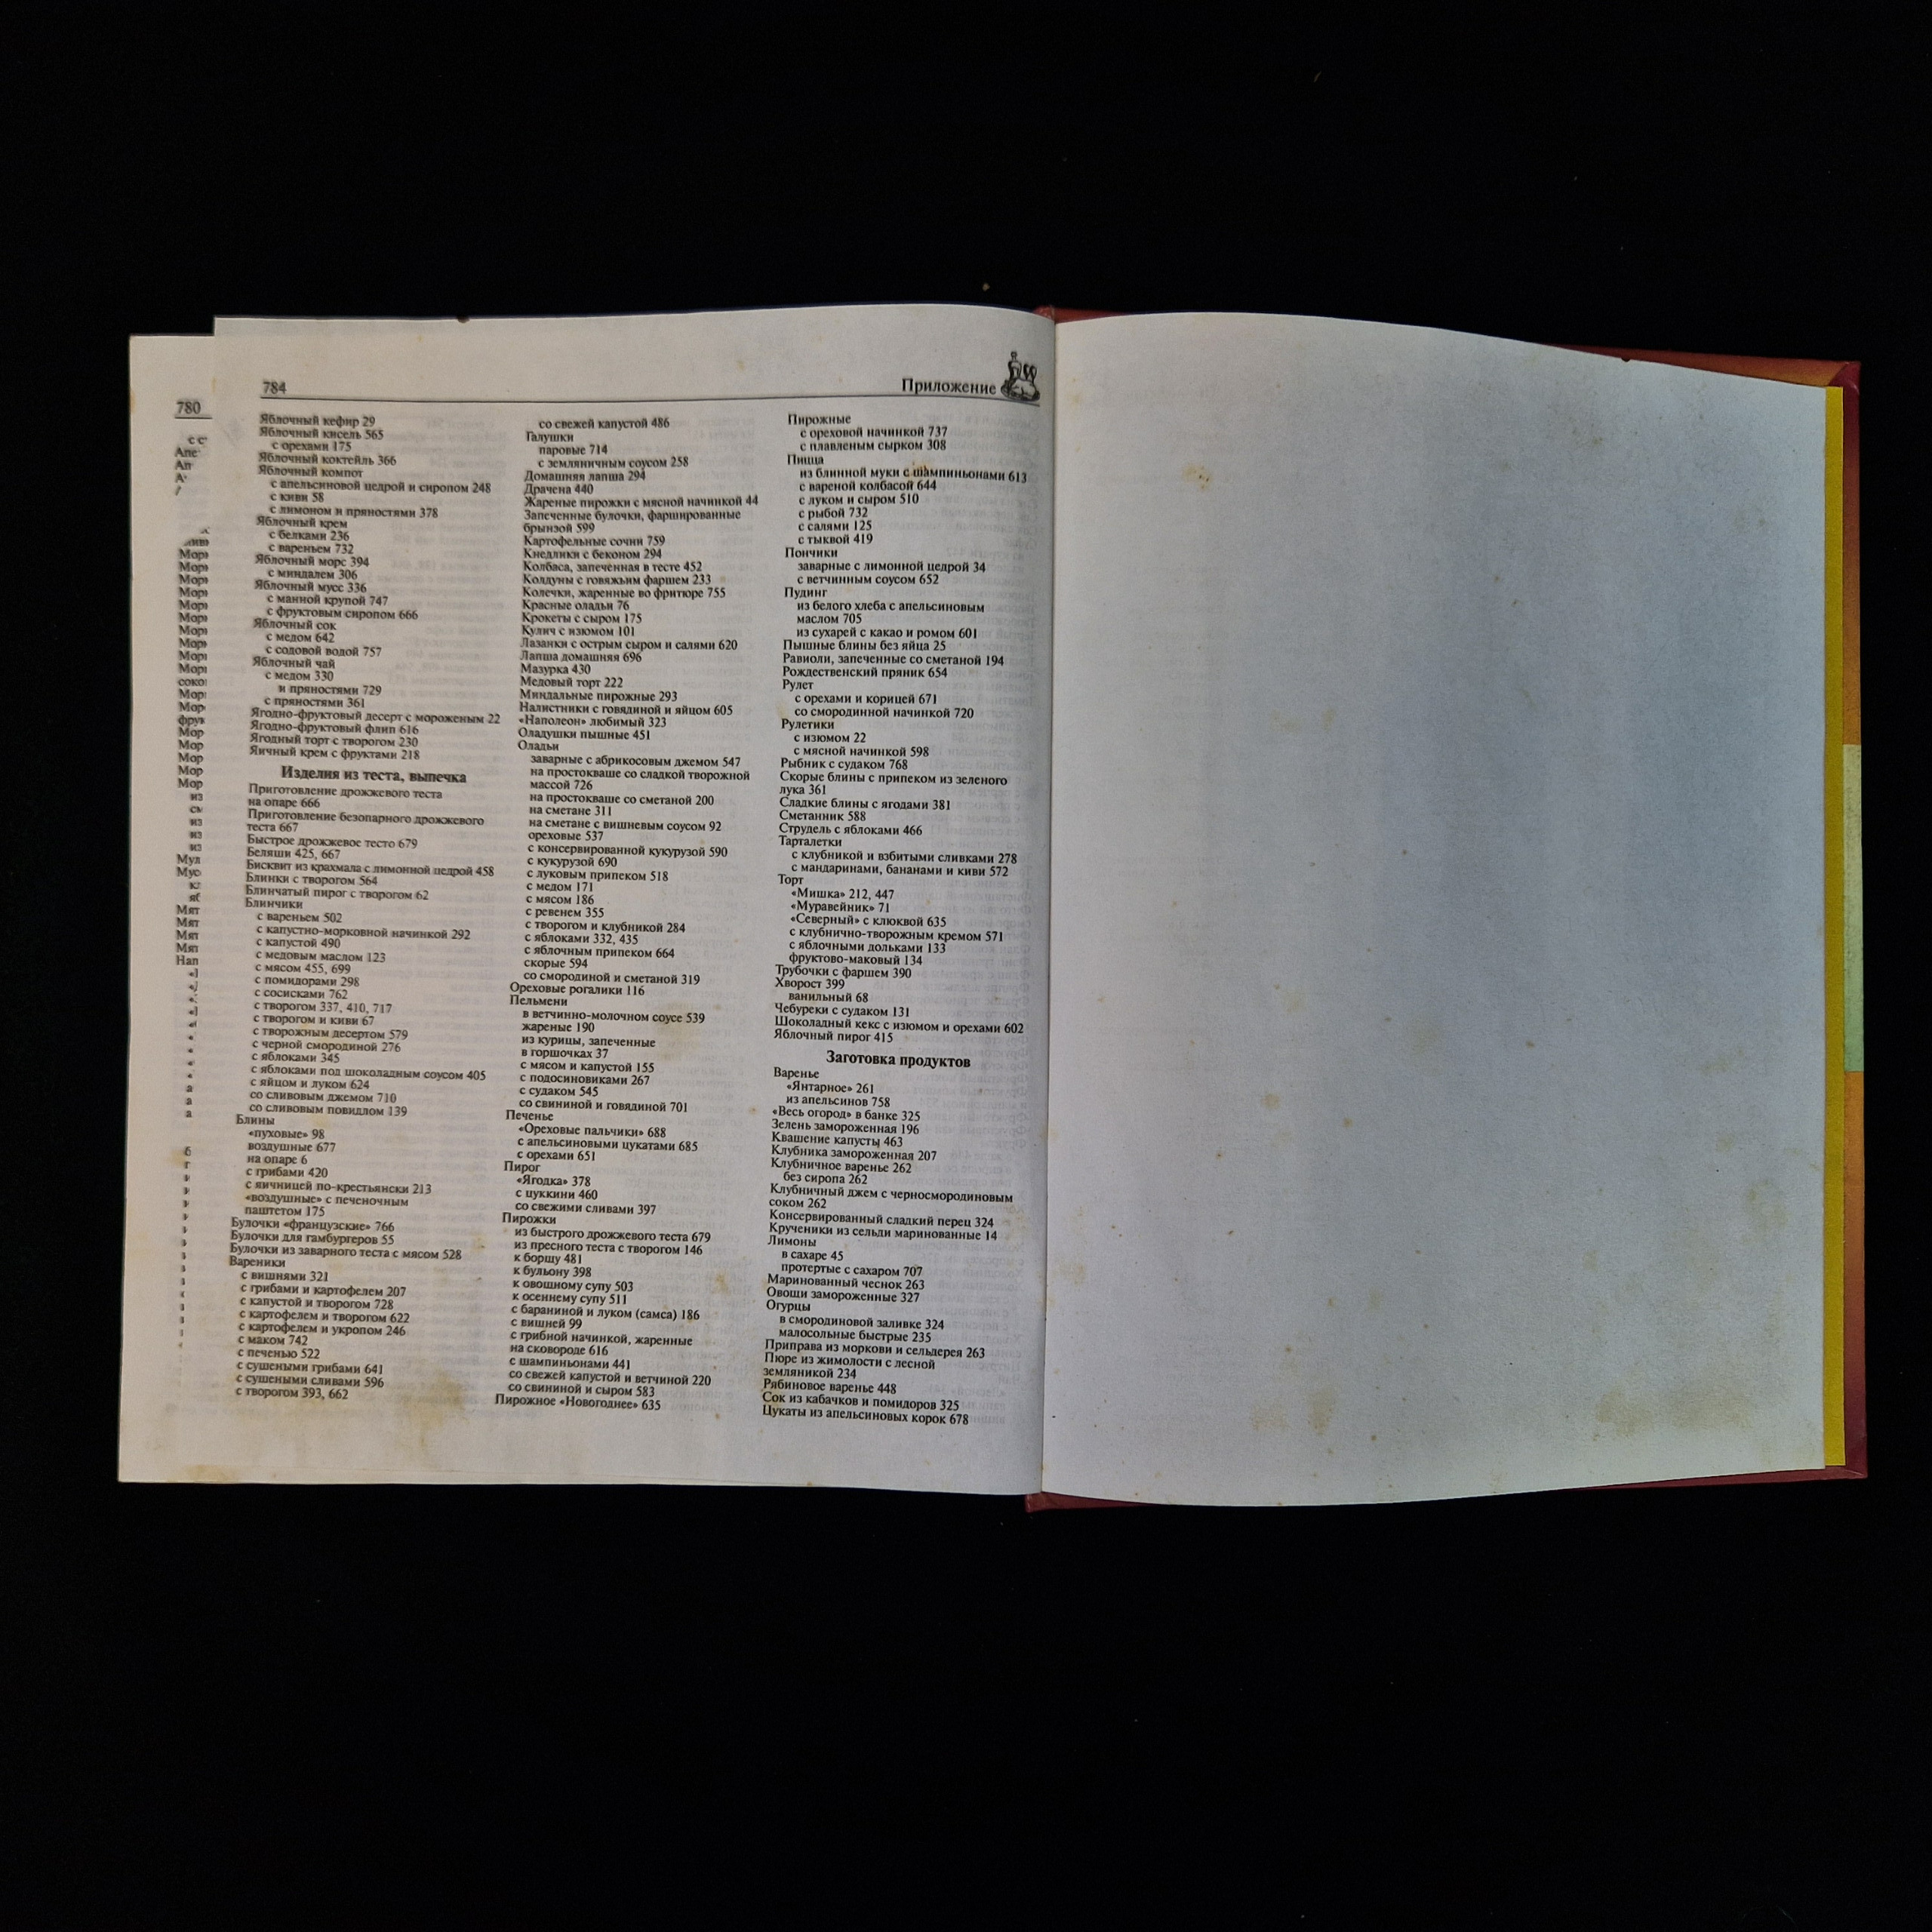 780
Мор
Мор
Мор
Мор
Мор
Мор
Мор
Мор
Мор
Мор
соко
Мор
Мор
фрук
Мор
Мор
Мор
Мор
из
из
из
из
Мул
Мус
Мят
Мят
Мят
Мят
Нап
784
Приложение
Яблочный кефир 29
Яблочный кисель 565
с орехами 175
Яблочный коктейль 366
Яблочный компот
с апельсиновой цедрой и сиропом 248
с киви 58
с лимоном и пряностями 378
Яблочный крем
с белками 236
с вареньем 732
Яблочный морс 394
с миндалем 306
Яблочный мусс 336
с манной крупой 747
с фруктовым сиропом 666
Яблочный сок
с медом 642
с содовой водой 757
Яблочный чай
с медом 330
и пряностями 729
с пряностями 361
Ягодно-фруктовый десерт с мороженым 22
Ягодно-фруктовый флип 616
Ягодный торт с творогом 230
Яичный крем с фруктами 218
Изделия из теста, выпечка
Приготовление дрожжевого теста
на опаре 666
Приготовление безопарного дрожжевого
теста 667
Быстрое дрожжевое тесто 679
Беляши 425, 667
Бисквит из крахмала с лимонной цедрой 458
Блинки с творогом 564
Блинчатый пирог с творогом 62
Блинчики
с вареньем 502
с капустно-морковной начинкой 292
с капустой 490
с медовым маслом 123
с мясом 455, 699
с помидорами 298
с сосисками 762
с творогом 337, 410, 717
с творогом и киви 67
с творожным десертом 579
с черной смородиной 276
с яблоками 345
с яблоками под шоколадным соусом 405
с яйцом и луком 624
со сливовым джемом 710
со сливовым повидлом 139
Блины
«пуховые» 98
воздушные 677
на опаре 6
с грибами 420
с яичницей по-крестьянски 213
«воздушные» с печеночным
паштетом 175
Булочки «французские» 766
Булочки для гамбургеров 55
Булочки из заварного теста с мясом 528
Вареники
с вишнями 321
с грибами и картофелем 207
с капустой и творогом 728
с картофелем и творогом 622
с картофелем и укропом 246
с маком 742
с печенью 522
с сушеными грибами 641
с сушеными сливами 596
с творогом 393, 662
со свежей капустой 486
Галушки
паровые 714
с земляничным соусом 258
Домашняя лапша 294
Драчена 440
Жареные пирожки с мясной начинкой 44
Запеченные булочки, фаршированные
брынзой 599
Картофельные сочни 759
Кнедлики с беконом 294
Колбаса, запеченная в тесте 452
Колдуны с говяжьим фаршем 233
Колечки, жаренные во фритюре 755
Красные оладьи 76
Крокеты с сыром 175
Кулич с изюмом 101
Лазанки с острым сыром и салями 620
Лапша домашняя 696
Мазурка 430
Медовый торт 222
Миндальные пирожные 293
Налистники с говядиной и яйцом 605
«Наполеон» любимый 323
Оладушки пышные 451
Оладьи
заварные с абрикосовым джемом 547
на простокваше со сладкой творожной
массой 726
на простокваше со сметаной 200
на сметане 311
на сметане с вишневым соусом 92
ореховые 537
с консервированной кукурузой 590
с кукурузой 690
с луковым припеком 518
с медом 171
с мясом 186
с ревенем 355
с творогом и клубникой 284
с яблоками 332, 435
с яблочным припеком 664
скорые 594
со смородиной и сметаной 319
Ореховые рогалики 116
Пельмени
в ветчинно-молочном соусе 539
жареные 190
из курицы, запеченные
в горшочках 37
с мясом и капустой 155
с подосиновиками 267
с судаком 545
со свининой и говядиной 701
Печенье
«Ореховые пальчики» 688
с апельсиновыми цукатами 685
с орехами 651
Пирог
«Ягодка» 378
с цуккини 460
со свежими сливами 397
Пирожки
из быстрого дрожжевого теста 679
из пресного теста с творогом 146
к борщу 481
к бульону 398
к овощному супу 503
к осеннему супу 511
с бараниной и луком (самса) 186
с вишней 99
с грибной начинкой, жаренные
на сковороде 616
с шампиньонами 441
со свежей капустой и ветчиной 220
со свининой и сыром 583
Пирожное «Новогоднее» 635
Пирожные
с ореховой начинкой 737
с плавленым сырком 308
Пицца
из блинной муки с шампиньонами 613
с вареной колбасой 644
с луком и сыром 510
с рыбой 732
с салями 125
с тыквой 419
Пончики
заварные с лимонной цедрой 34
с ветчинным соусом 652
Пудинг
из белого хлеба с апельсиновым
маслом 705
из сухарей с какао и ромом 601
Пышные блины без яйца 25
Равиоли, запеченные со сметаной 194
Рождественский пряник 654
Рулет
с орехами и корицей 671
со смородинной начинкой 720
Рулетики
с изюмом 22
с мясной начинкой 598
Рыбник с судаком 768
Скорые блины с припеком из зеленого
лука 361
Сладкие блины с ягодами 381
Сметанник 588
Струдель с яблоками 466
Тарталетки
с клубникой и взбитыми сливками 278
с мандаринами, бананами и киви 572
Торт
«Мишка» 212, 447
«Муравейник» 71
«Северный» с клюквой 635
с клубнично-творожным кремом 571
с яблочными дольками 133
фруктово-маковый 134
Трубочки с фаршем 390
Хворост 399
ванильный 68
Чебуреки с судаком 131
Шоколадный кекс с изюмом и орехами 602
Яблочный пирог 415
Заготовка продуктов
Варенье
«Янтарное» 261
из апельсинов 758
«Весь огород» в банке 325
Зелень замороженная 196
Квашение капусты 463
Клубника замороженная 207
Клубничное варенье 262
без сиропа 262
Клубничный джем с черносмородиновым
соком 262
Консервированный сладкий перец 324
Крученики из сельди маринованные 14
Лимоны
в сахаре 45
протертые с сахаром 707
Маринованный чеснок 263
Овощи замороженные 327
Огурцы
в смородиновой заливке 324
малосольные быстрые 235
Приправа из моркови и сельдерея 263
Пюре из жимолости с лесной
земляникой 234
Рябиновое варенье 448
Сок из кабачков и помидоров 325
Цукаты из апельсиновых корок 678